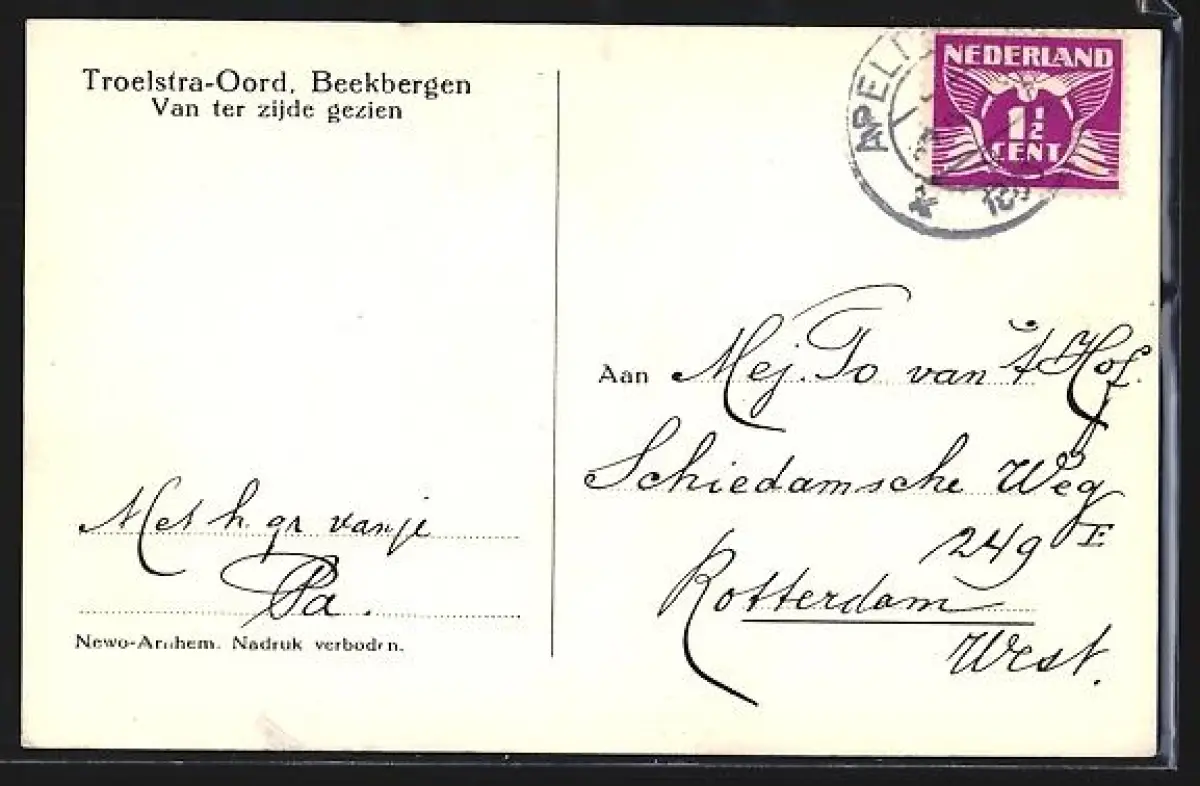 Troelstra-Oord, Beekbergen
Van ter zijde gezien
NEDERLAND
1½
CENT
Aan Mej. To van 't Hof.
Schiedamsche Weg
249 E
Rotterdam
West.
Met h. gr van je
Pa.
Newo-Arnhem. Nadruk verboden.